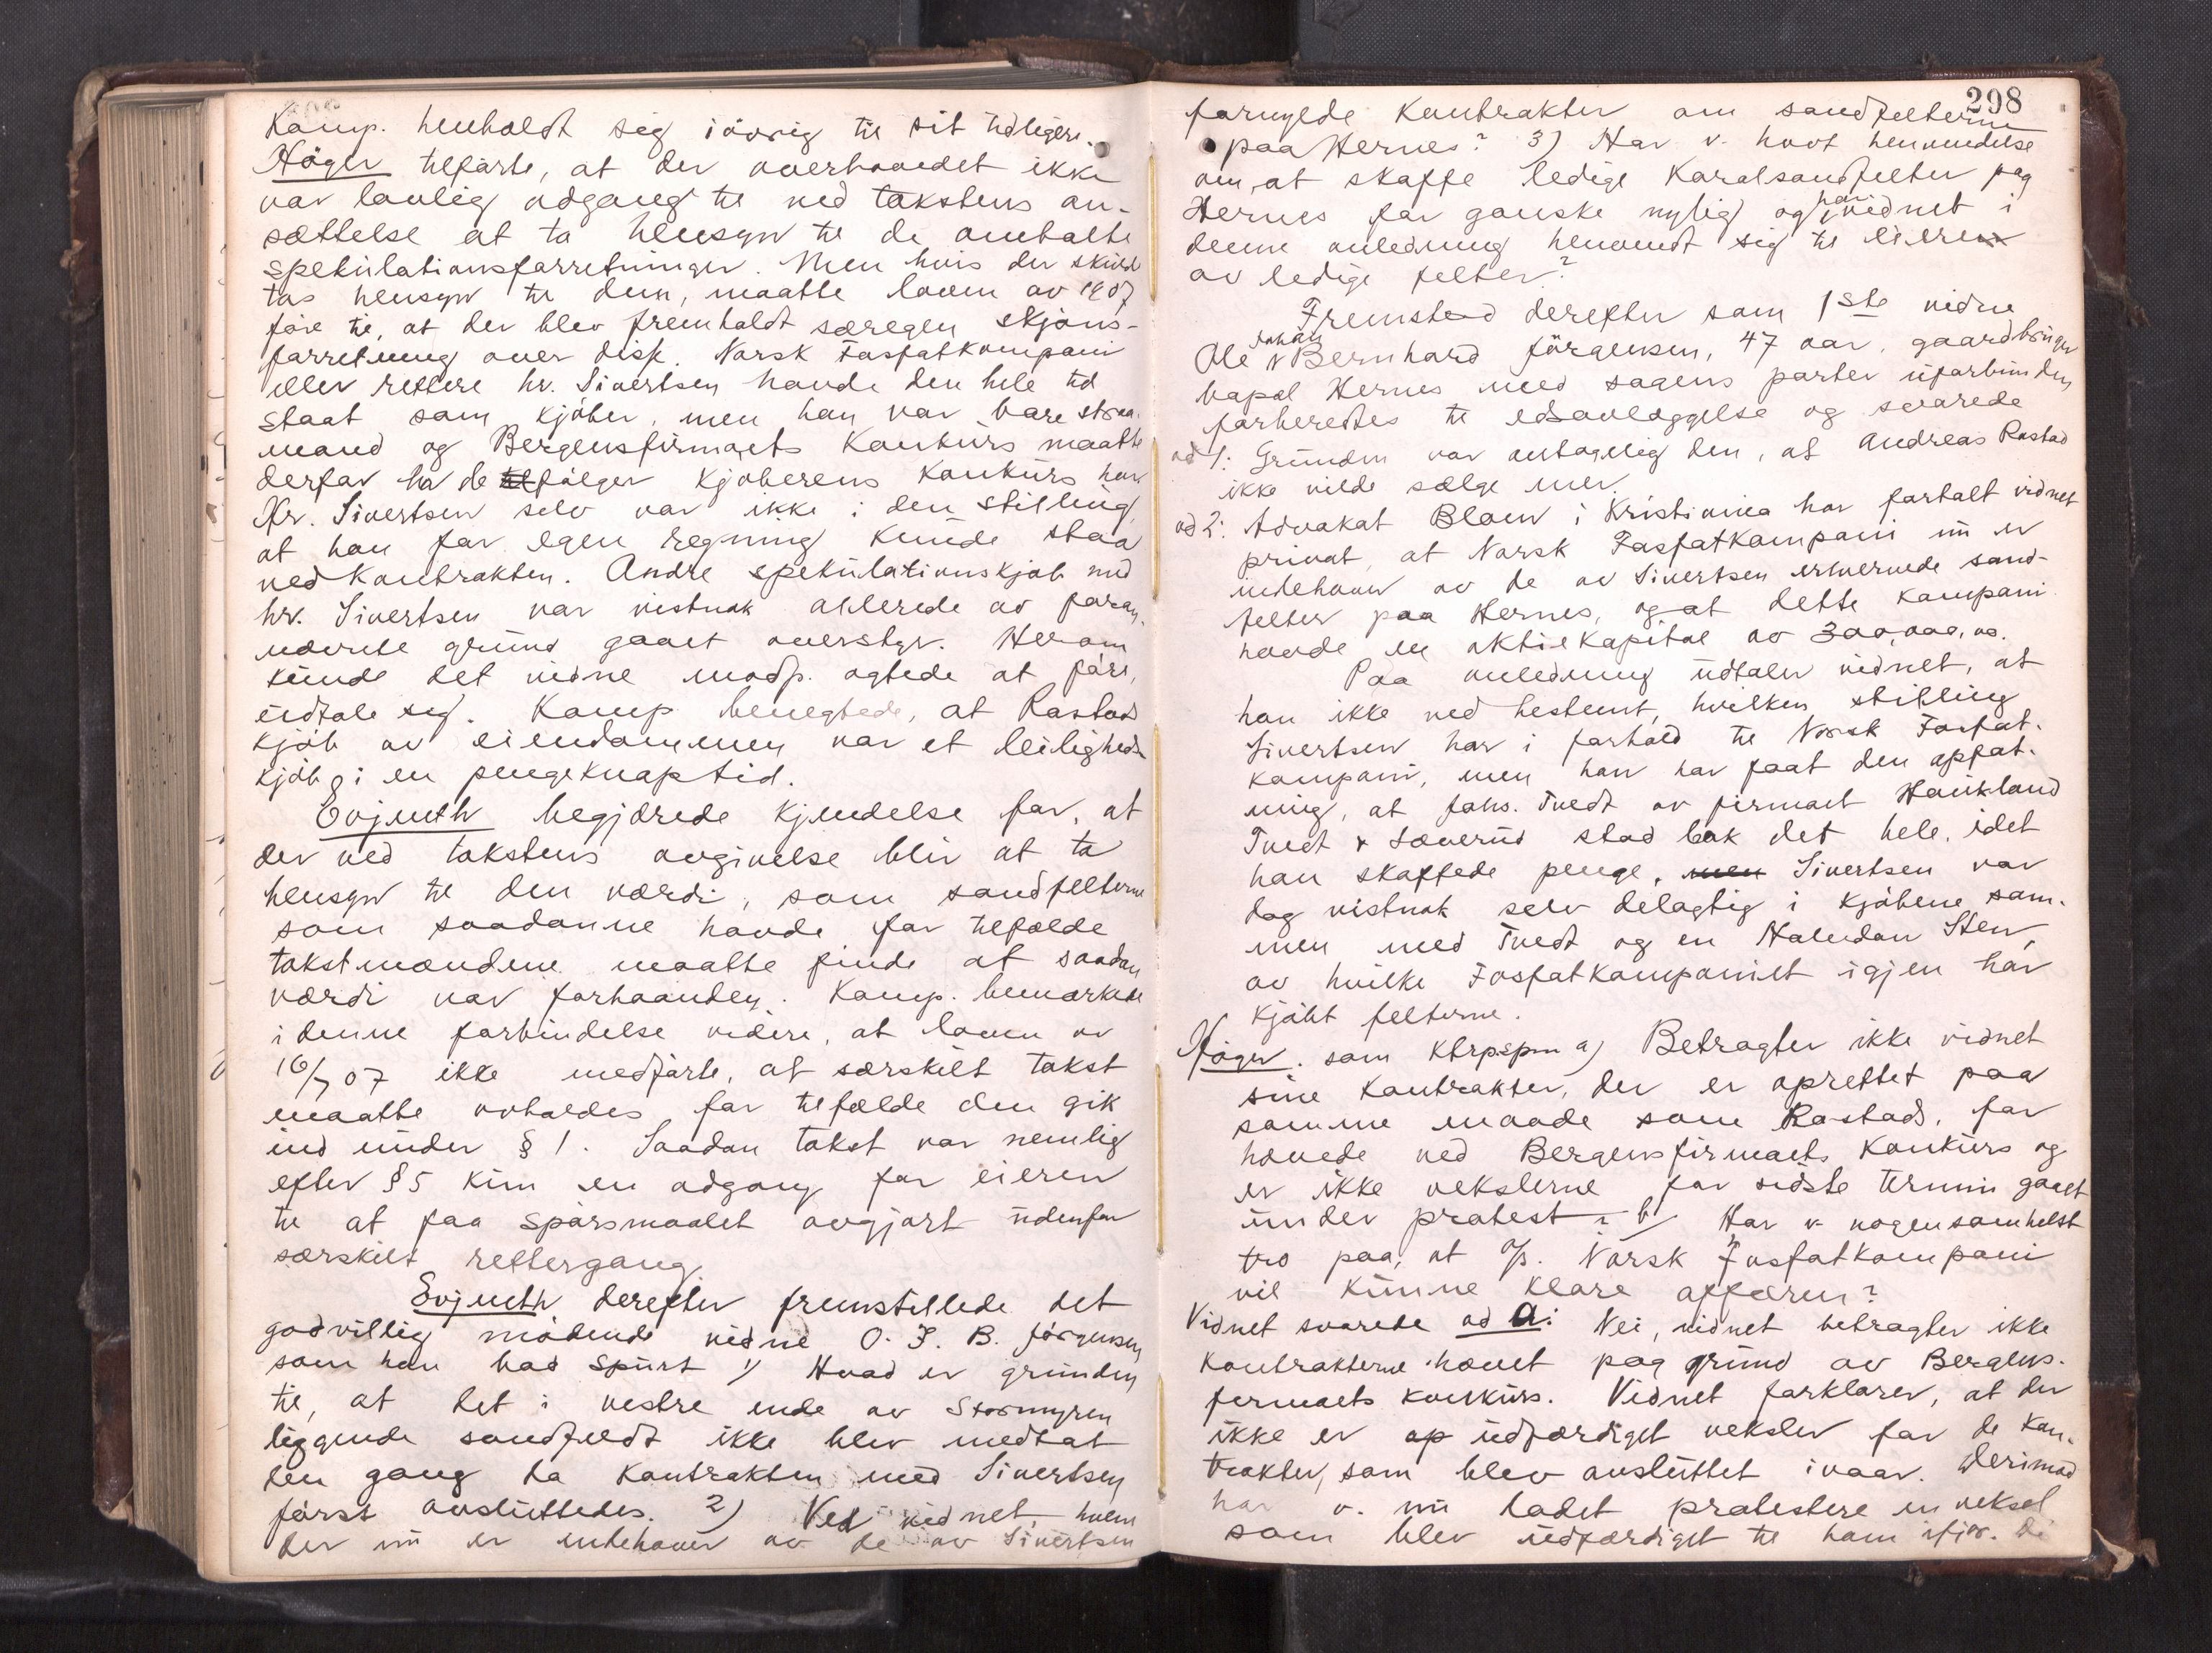 Komp. henholdt sig iövrig til sit tidligere.
Höyer tilförte, at der overhovedet ikke
var lovlig adgang til ved takstens an-
sættelse at ta hensyn til de omtalte
spekulationsforretninger. Men hvis der skulde
tas hensyn til dem, maatte loven av 1907
före til, at der blev fremholdt særegen skjöns-
forretning over disse. Norsk Fosfatkompani
eller rettere hr. Sivertsen havde den hele tid
staat som kjöber, men han var bare straa-
mand og Bergensfirmaets konkurs maatte
derfor ha de følger kjøberens konkurs har
Hr. Sivertsen selv var ikke i den stilling,
at han for egen regning kunde staa
ved kontrakten. Andre spekulationskjöb med
hr. Sivertsen var vistnok allerede av foran-
nævnte grund gaaet overstyr. Herom
kunde det vidne modp. agtede at före,
uttale sig. Komp benegtede, at Rastads
kjöb av eiendommen var et leiligheds-
kjöb i en pengeknap tid.
Evjenth begjærede kjendelse for, at
der ved takstens avgivelse blir at ta
hensyn til den værdi, som sandfelterne
som saadanne havde for tilfælde
takstmændene maatte finde at saadan
værdi var forhaanden. Komp. bemærkede
i denne forbindelse videre, at loven av
16/7 07 ikke medförte, at særskilt takst
maatte avholdes for tilfælde den gik
ind under § 1. Saadan takst var nemlig
efter § 5 kun en adgang for eieren
til at faa spörsmaalet avgjort udenfor
særskilt rettergang.
Evjenth derefter fremstillede det
godvillig mödende vidne O. J. B. Jörgensen,
som han bad spurt 1) Hvad er grunden
til, at det i vestre ende av Stormyren
liggende sandfeldt ikke blev medtat
den gang da kontrakten med Sivertsen
först avsluttedes. 2) Ved vidnet, hvem
der nu er indehaver av de av Sivertsen
298
fornyede kontrakter om sandfelterne
paa Hernes? 3) Har v. havt henvendelse
om at skaffe ledige koralsandfelter paa
Hernes for ganske nylig og har vidnet i
denne anledning henvendt sig til eieren
av ledige felter?
Fremstod derefter som 1ste vidne
Ole Johan Bernhard Jörgensen, 47 aar, gaardbruger
bopæl Hernes med sagens parter uforbunden
forberedtes til edsavlæggelse og svarede
ad 1: Grunden var antagelig den, at Andreas Rastad
ikke vilde sælge mer.
ad 2: Advokat Blom i Kristiania har fortalt vidnet
privat, at Norsk Fosfatkompani nu er
indehaver av de av Sivertsen erhvervede sand-
felter paa Hernes, og at dette kompani
havde en aktiekapital av 300,000,00.
Paa anledning udtaler vidnet, at
han ikke ved bestemt, hvilken stilling
Sivertsen har i forhold til Norsk Fosfat-
kompani, men han har faat den opfat-
ning, at Johs. Tvedt av firmaet Haukland
Tvedt & Sæverud stod bak det hele, idet
han skaffede penge, men Sivertsen var
dog vistnok selv delagtig i kjöbene sam-
men med Tvedt og en Halvdan Sten,
av hvilke Fosfatkompaniet igjen har
kjöbt felterne.
Höyer. som ktrpspm a) Betragter ikke vidnet
sine kontrakter, der er oprettet paa
samme maade som Rastads, for
hævede ved Bergensfirmaets konkurs og
er ikke vekslerne for sidste termin gaaet
under protest? b) Har v. nogensomhelst
tro paa, at A/S. Norsk Fosfatkompani
vil kunne klare affæren?
Vidnet svarede ad a: Nei, vidnet betragter ikke
kontrakterne hævet paa grund av Bergens-
fermaets konkurs. Vidnet forklarer, at der
ikke er op udfærdiget veksler for de kon-
trakter, som blev avsluttet ivaar. Derimod
har v. nu ladet protestere en veksel
som blev udfærdiget til ham ifjor. Di